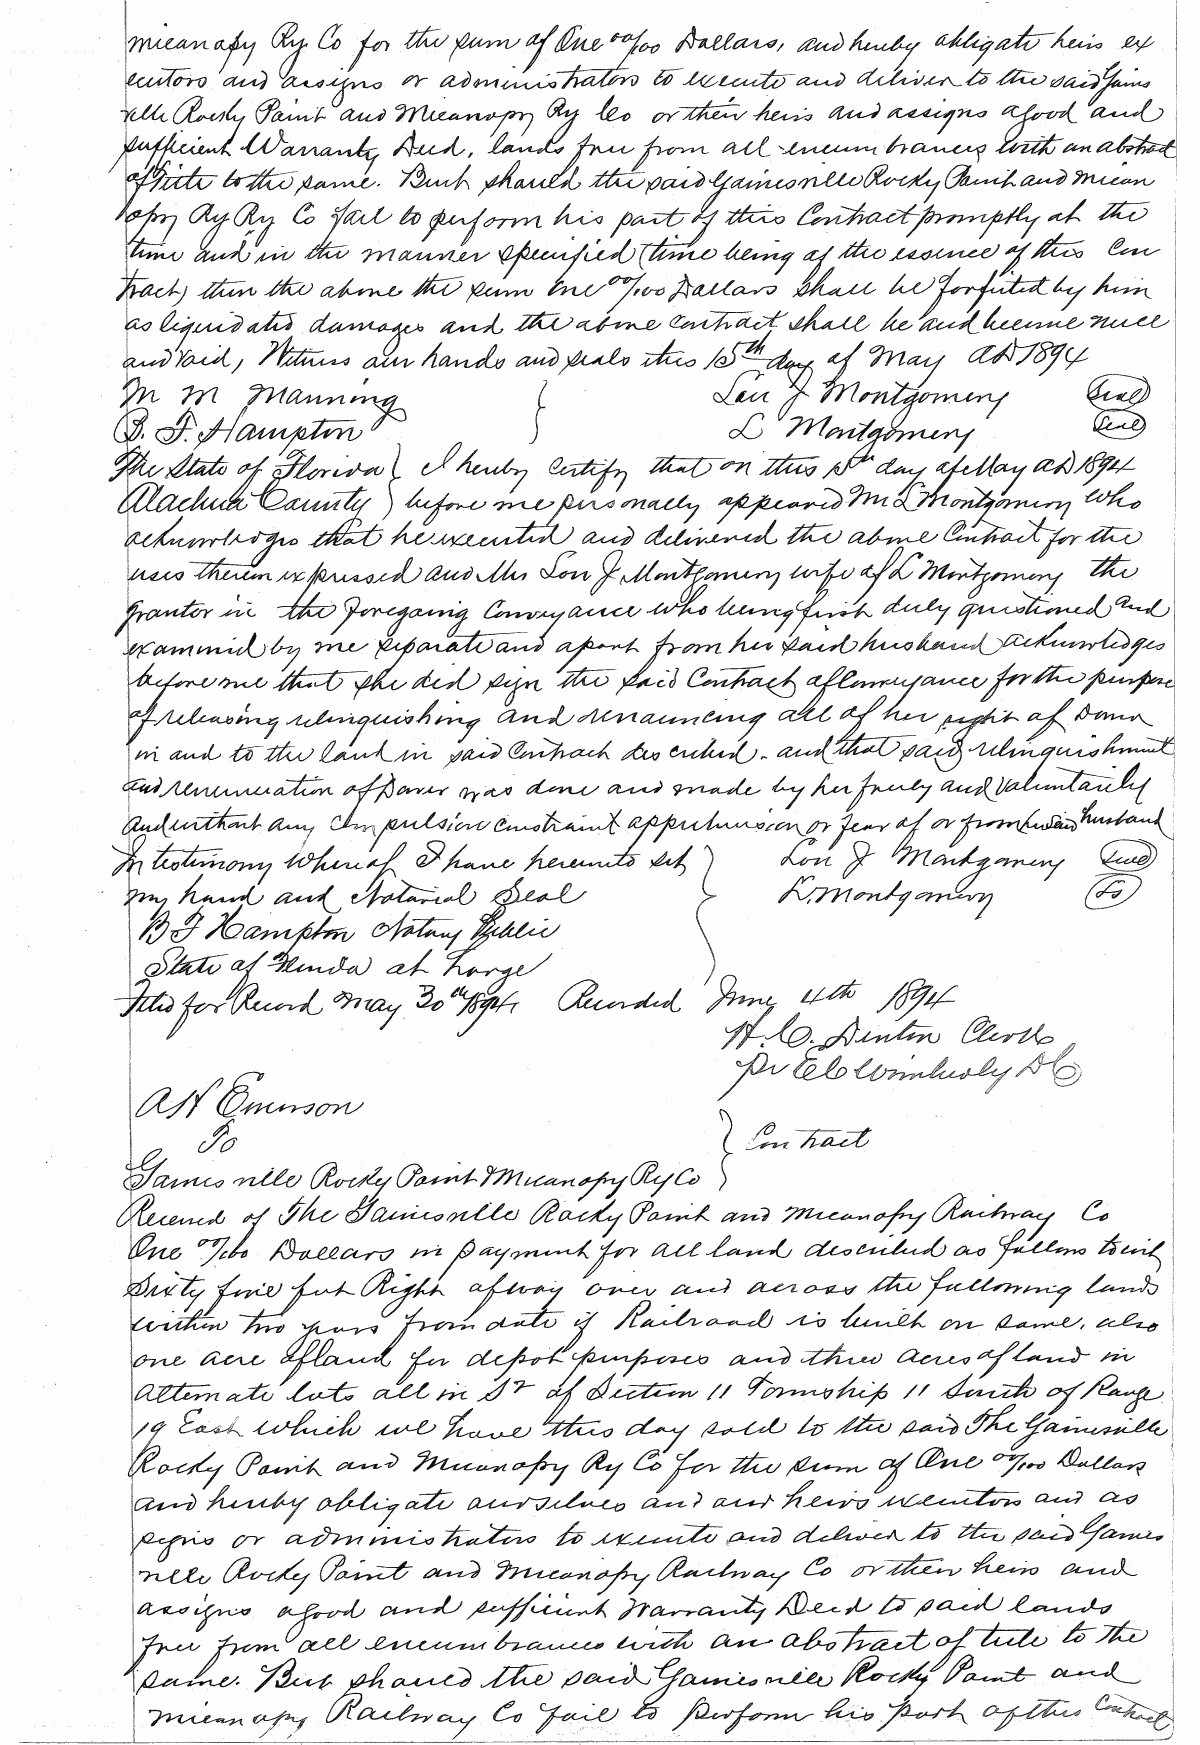 micanopy Ry. Co for the sum of One 00/100 Dollars, and hereby obligate heirs ex
ecutors and assigns or administrators to execute and deliver to the said Gains
ville Rocky Point and Micanopy Ry Co or their heirs and assigns a good and
sufficient Warranty Deed, lands free from all encumbrances with an abstract
of Title to the same. But should the said Gainesville Rocky Point and Mican
opy Ry Ry Co fail to perform his part of this Contract promptly at the
time and in the manner specified (time being of the essence of this Con
tract) then the above the sum One 00/100 Dollars shall be forfeited by him
as liquidated damages and the above contract shall be and become null
and void, Witness our hands and seals this 15th day of May AD 1894
M M Manning } Lou J Montgomery (Seal)
B. F. Hampton L Montgomery (Seal)
The State of Florida } I hereby Certify that on this 15th day of May AD 1894
Alachua County ) before me personally appeared Mr L Montgomery who
acknowledges that he executed and delivered the above Contract for the
uses therein expressed and Mrs Lou J Montgomery wife of L Montgomery the
grantor in the foregoing Conveyance who being first duly questioned and
examined by me separate and apart from her said husband acknowledges
before me that she did sign the said Contract of Conveyance for the purpose
of releasing relinquishing and renouncing all of her right of Dower
in and to the land in said Contract described. and that said relinquishment
and renunciation of Dower was done and made by her freely and voluntarily
and without any compulsion constraint apprehension or fear of or from her said husband
In testimony Whereof I have hereunto set } Lou J Montgomery (Seal)
my hand and Notarial Seal L. Montgomery (LS)
B F Hampton Notary Public
State of Florida at Large
Filed for Record May 30th 1894, Recorded June 4th 1894
H. C. Denton Clerk
Pr E C Wimberly D C
A H Emerson
To
} Contract
Gainesville Rocky Point & Micanopy Ry Co
Received of The Gainesville Rocky Point and Micanopy Railway Co
One 00/100 Dollars in payment for all land described as follows to wit
Sixty five feet Right of way over and across the following lands
within two years from date if Railroad is built on same, also
one acre of land for depot purposes and three acres of land in
alternate lots all in S 2 of Section 11 Township 11 South of Range
19 East which we have this day sold to the said The Gainesville
Rocky Point and Micanopy Ry Co for the sum of One 00/100 Dollars
and hereby obligate ourselves and our heirs executors and as
signs or administrators to execute and deliver to the said Gaines
ville Rocky Point and Micanopy Railway Co or their heirs and
assigns a good and sufficient Warranty Deed to said lands
free from all encumbrances with an abstract of title to the
same. But should the said Gainesville Rocky Point and
micanopy Railway Co fail to perform his part of this Contract